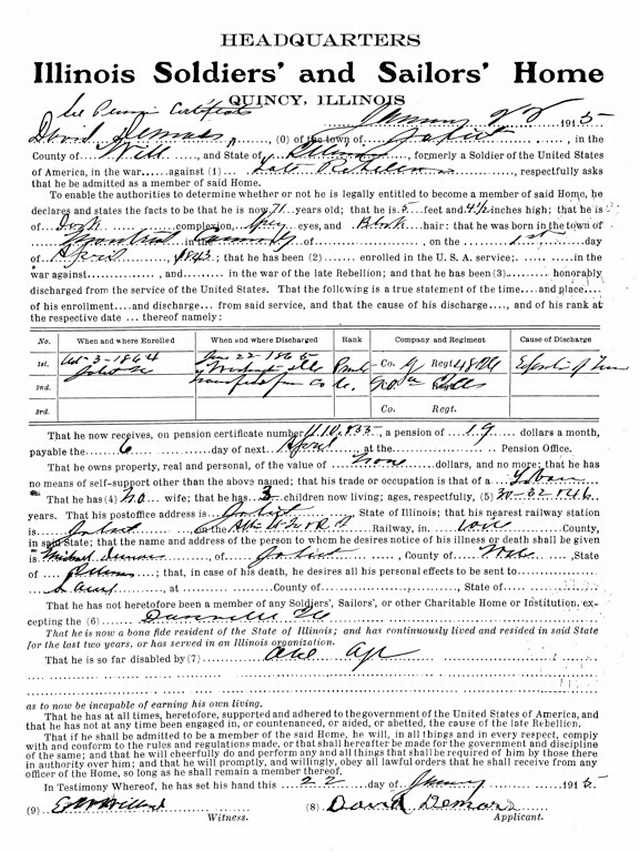 HEADQUARTERS
Illinois Soldiers' and Sailors' Home
QUINCY, ILLINOIS
See Certificate
January 22 1915
David Demars, (0) of the town of Joliet, in the
County of Will, and State of Illinois, formerly a Soldier of the United States
of America, in the war against (1) Late Rebellion, respectfully asks
that he be admitted as a member of said Home.
To enable the authorities to determine whether or not he is legally entitled to become a member of said Home, he
declares and states the facts to be that he is now 71 years old; that he is 5 feet and 4½ inches high; that he is
of Dark complexion, Grey eyes, and Black hair: that he was born in the town of
Montreal in the of on the 1st day
of April, 1843; that he has been (2) enrolled in the U. S. A. service; in the
war against, and in the war of the late Rebellion; and that he has been (3) honorably
discharged from the service of the United States. That the following is a true statement of the time and place
of his enrollment and discharge from said service, and that the cause of his discharge, and of his rank at
the respective date ... thereof namely:
No. When and where Enrolled When and where Discharged Rank Company and Regiment Cause of Discharge
1st. Oct-3-1864 June 22-1865 Co. G Regt. 48 Ills
2nd. Joliet Ills transferred from Co
3rd. Co. Regt.
That he now receives, on pension certificate number 1110.835, a pension of 19 dollars a month,
payable the 6 day of next April at the Pension Office.
That he owns property, real and personal, of the value of none dollars, and no more; that he has
no means of self-support other than the above named; that his trade or occupation is that of a
That he has (4) no wife; that he has 3 children now living; ages, respectively, (5)
years. That his postoffice address is Joliet, State of Illinois; that his nearest railway station
is Joliet on the Railway, in Will County,
in said State; that the name and address of the person to whom he desires notice of his illness or death shall be given
is Michael Demars, of Joliet, County of Will, State
of Illinois; that, in case of death, he desires all his personal effects to be sent to
at County of, State of
That he has not heretofore been a member of any Soldiers', Sailors', or other Charitable Home or Institution, ex-
cepting the (6) Danville Ill
That he is now a bona fide resident of the State of Illinois; and has continuously lived and resided in said State
for the last two years, or has served in an Illinois organization.
That he is so far disabled by (7) Old Age
as to now be incapable of earning his own living.
That he has at all times, heretofore, supported and adhered to the government of the United States of America, and
that he has not at any time been engaged in, or countenanced, or aided, or abetted, the cause of the late Rebellion.
That if he shall be admitted to be a member of the said Home, he will, in all things and in every respect, comply
with and conform to the rules and regulations made, or that shall hereafter be made for the government and discipline
of the same; and that he will cheerfully do and perform any and all things that shall be required of him by those there
in authority over him; and that he will promptly, and willingly, obey all lawful orders that he shall receive from any
officer of the Home, so long as he shall remain a member thereof.
In Testimony Whereof, he has set his hand this 22 day of January 1915
(9) (8) David Demars
Witness. Applicant.